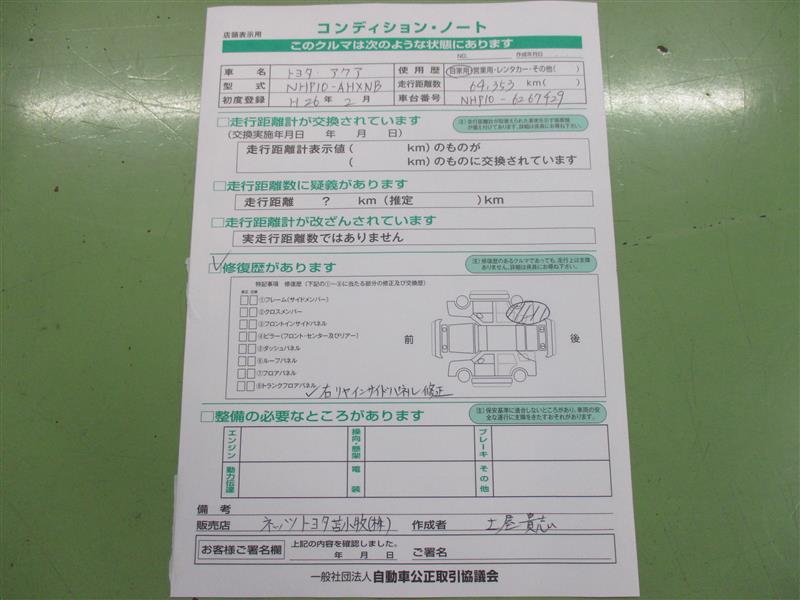 店頭表示用
コンディション・ノート
このクルマは次のような状態にあります
NO.
作成年月日
車名 トヨタ・アクア 使用歴 自家用・営業用・レンタカー・その他( )
型式 NHP10-AHXNB 走行距離数 64,353 km( )
初度登録 H26年2月 車台番号 NHP10-6267429
□走行距離計が交換されています
(交換実施年月日 年 月 日)
走行距離計表示値( km)のものが
( km)のものに交換されています
□走行距離数に疑義があります
走行距離 ? km(推定 )km
□走行距離計が改ざんされています
実走行距離数ではありません
✓□修復歴があります
注)修復歴のあるクルマであっても、走行上は支障ありません。詳細は係員にお尋ね下さい。
特記事項 修復歴(下記の①~⑧に当たる部分の修正及び交換歴)
修正 交換
①フレーム(サイドメンバー)
②クロスメンバー
③フロントインサイドパネル
④ピラー(フロント・センター及びリアー)
⑤ダッシュパネル
⑥ルーフパネル
⑦フロアパネル
⑧トランクフロアパネル
前
後
✓右リヤインサイドパネル修正
□整備の必要なところがあります
注)保安基準に適合しないところがあり、車両の安全な運行に支障をきたすおそれがあります。
エンジン 操向・懸架 ブレーキ
動力伝達 電装 その他
備考
販売店 ネッツトヨタ苫小牧(株) 作成者 土屋貴志
お客様ご署名欄 上記の内容を確認しました。
年 月 日 ご署名
一般社団法人 自動車公正取引協議会